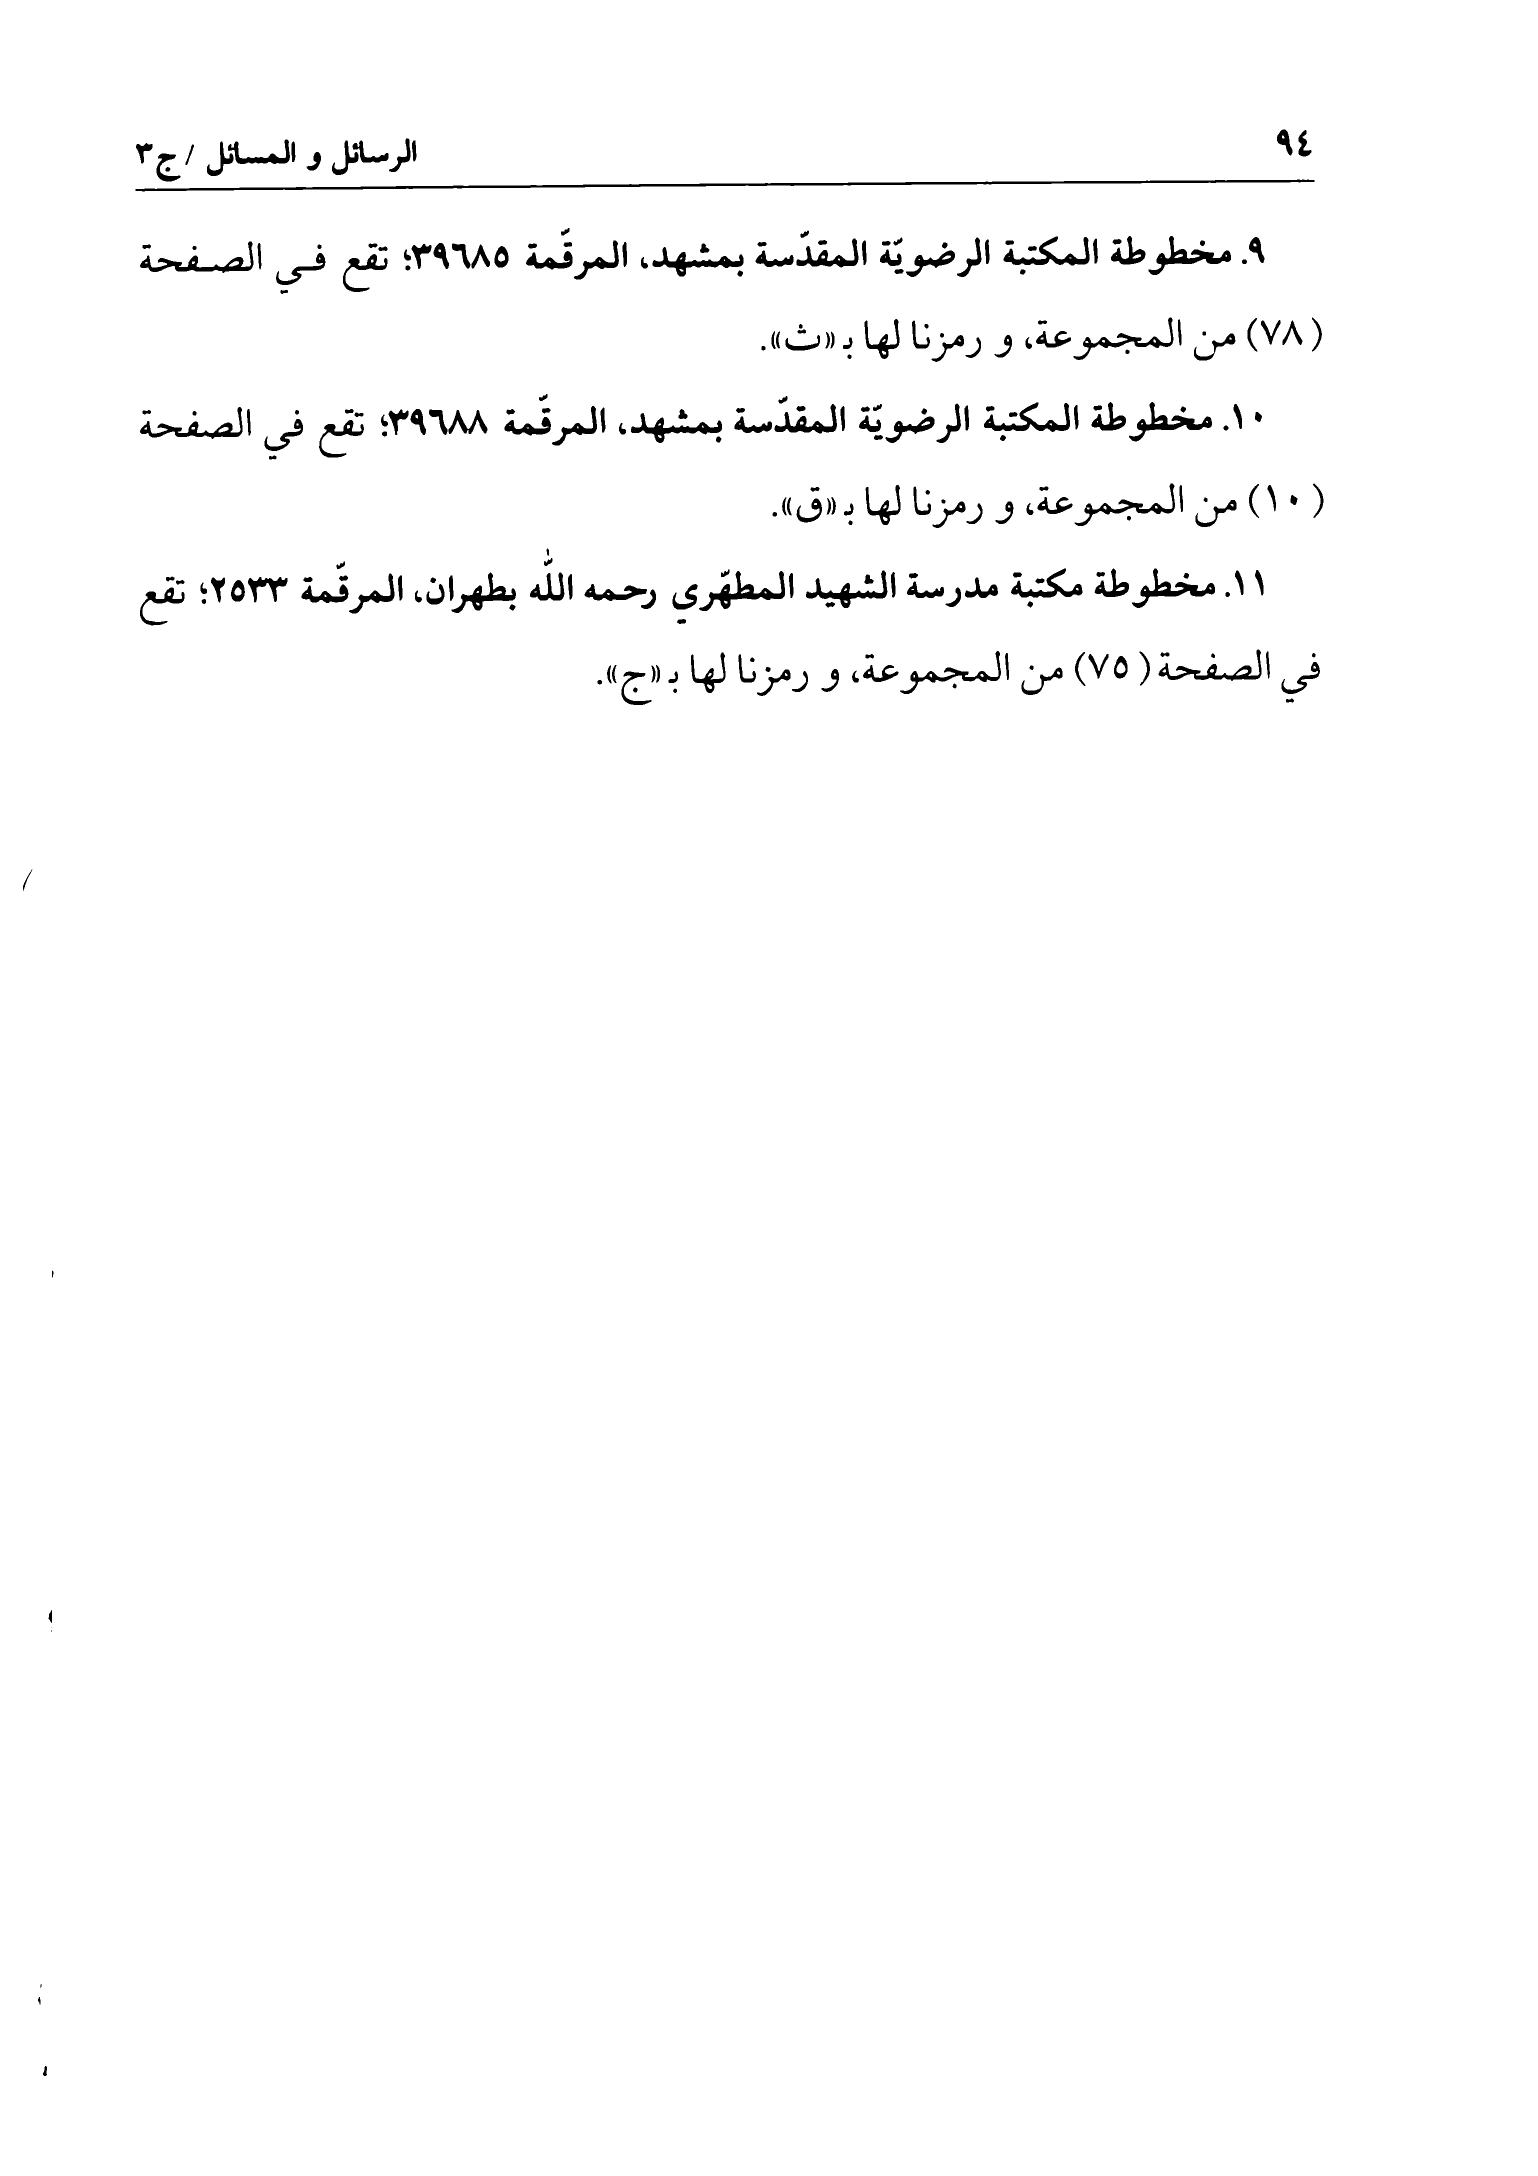 ٩٤
الرسائل و المسائل / ج٣
٩. مخطوطة المكتبة الرضويّة المقدّسة بمشهد، المرقّمة ٣٩٦٨٥؛ تقع في الصفحة
(٧٨) من المجموعة، و رمزنا لها بـ«ث».
١٠. مخطوطة المكتبة الرضويّة المقدّسة بمشهد، المرقّمة ٣٩٦٨٨؛ تقع في الصفحة
(١٠) من المجموعة، و رمزنا لها بـ«ق».
١١. مخطوطة مكتبة مدرسة الشهيد المطهّري رحمه اللّٰه بطهران، المرقّمة ٢٥٣٣؛ تقع
في الصفحة (٧٥) من المجموعة، و رمزنا لها بـ«ج».